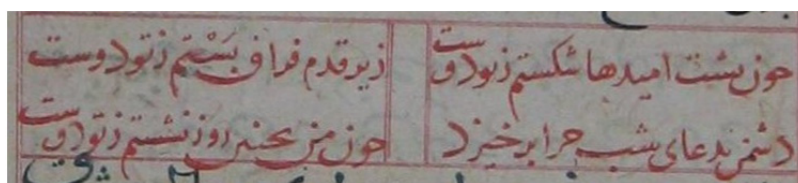 چون پشت امیدها شکستم ز تو دوست
زیر قدم فراق بستم ز تو دوست
دشمن بدعای شب چرا برخیزد
چون من بچنین روز نشستم ز تو دوست